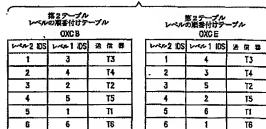 第2テーブル
レベルの順番付けテーブル
OXC B
レベル2 IDS レベル1 IDS 送信器
1 3 T3
2 4 T4
3 2 T2
4 5 T5
5 1 T1
6 6 T6
第2テーブル
レベルの順番付けテーブル
OXC E
レベル2 IDS レベル1 IDS 送信器
1 4 T3
2 3 T4
3 5 T2
4 2 T5
5 6 T1
6 1 T6